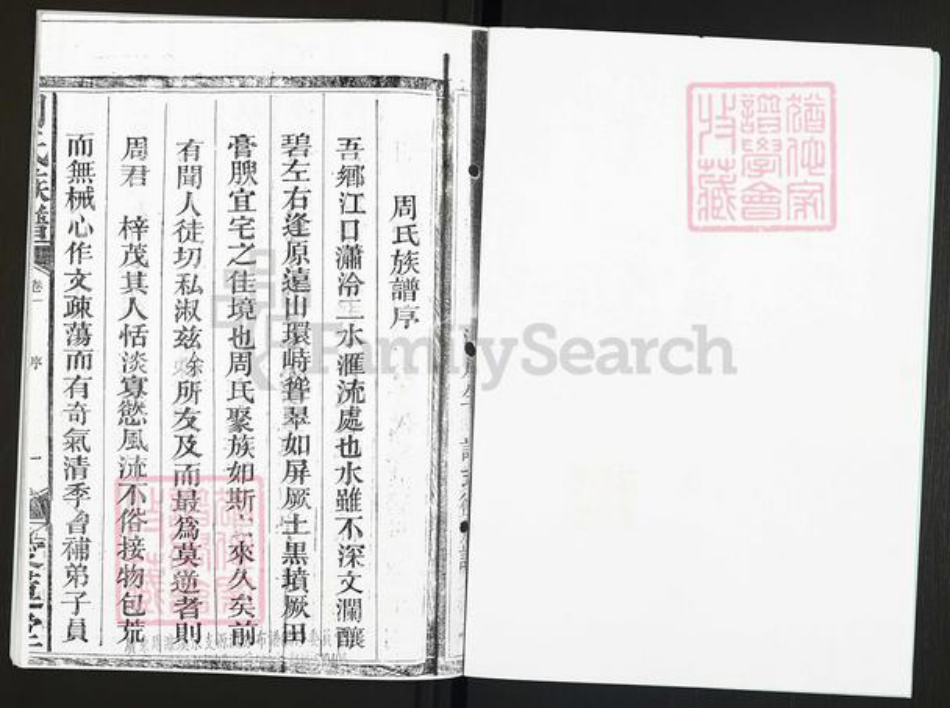 周氏族譜序
吾鄉江口瀟泠二水滙流處也水雖不深文瀾釀
碧左右逢原遠山環峙聳翠如屏厥土黑墳厥田
膏腴宜宅之佳境也周氏聚族如斯 來久矣前
有聞人徒切私淑兹餘所友及而最爲莫逆者則
周君 梓茂其人恬淡寡慾風流不俗接物包荒
而無械心作文疎蕩而有奇氣清季會補弟子員
氏族譜
卷一
序
一
FamilySearch
猶他家
譜學會
收藏